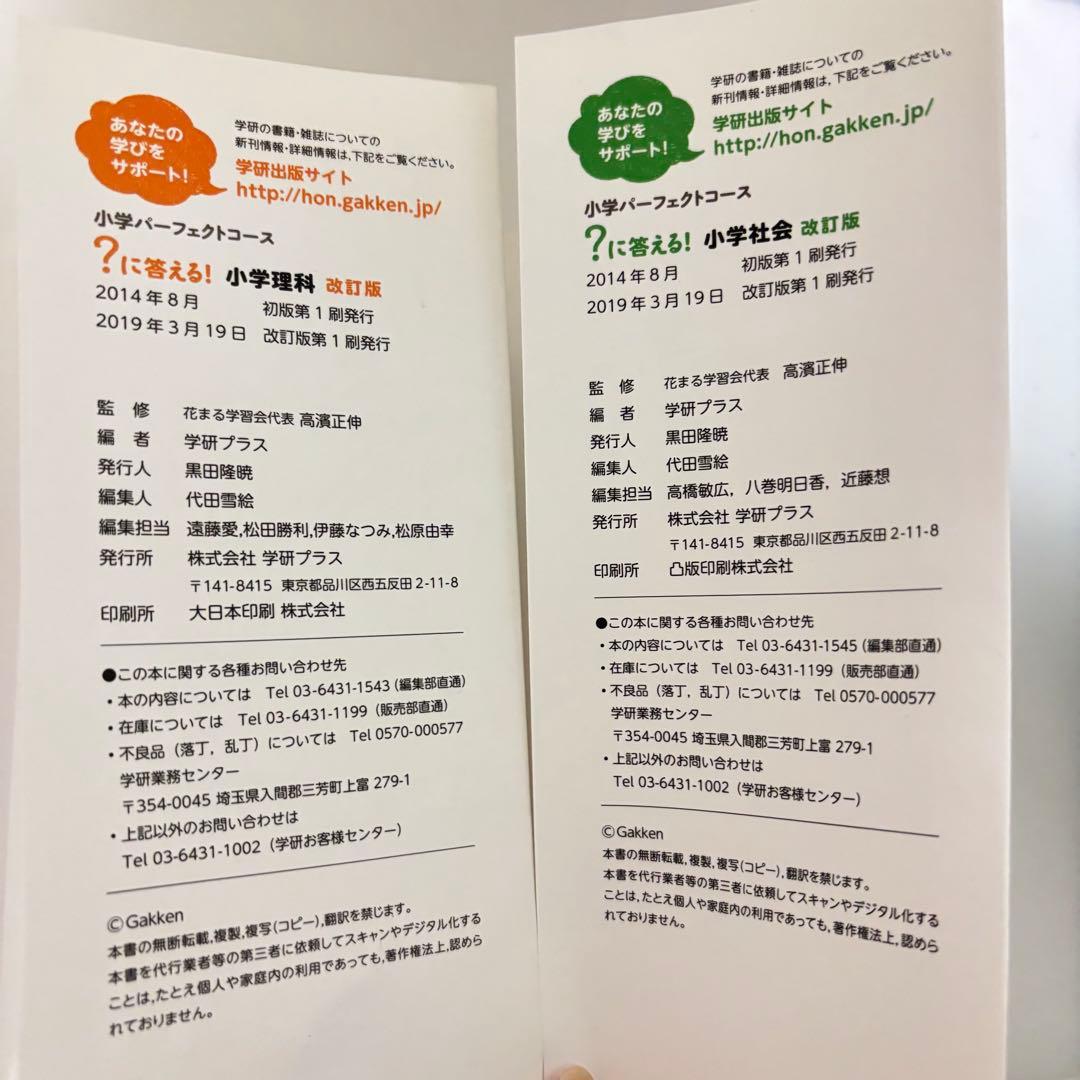 あなたの
学びを
サポート!
学研の書籍・雑誌についての
新刊情報・詳細情報は、下記をご覧ください。
学研出版サイト
http://hon.gakken.jp/
小学パーフェクトコース
?に答える! 小学理科 改訂版
2014年8月 初版第1刷発行
2019年3月19日 改訂版第1刷発行
監 修 花まる学習会代表 高濱正伸
編 者 学研プラス
発行人 黒田隆暁
編集人 代田雪絵
編集担当 遠藤愛,松田勝利,伊藤なつみ,松原由幸
発行所 株式会社 学研プラス
〒141-8415 東京都品川区西五反田2-11-8
印刷所 大日本印刷 株式会社
●この本に関する各種お問い合わせ先
・本の内容については Tel 03-6431-1543(編集部直通)
・在庫については Tel 03-6431-1199(販売部直通)
・不良品(落丁,乱丁)については Tel 0570-000577
学研業務センター
〒354-0045 埼玉県入間郡三芳町上富 279-1
・上記以外のお問い合わせは
Tel 03-6431-1002(学研お客様センター)
©Gakken
本書の無断転載,複製,複写(コピー),翻訳を禁じます。
本書を代行業者等の第三者に依頼してスキャンやデジタル化する
ことは,たとえ個人や家庭内の利用であっても,著作権法上,認めら
れておりません。
あなたの
学びを
サポート!
学研の書籍・雑誌についての
新刊情報・詳細情報は,下記をご覧ください。
学研出版サイト
http://hon.gakken.jp/
小学パーフェクトコース
?に答える! 小学社会 改訂版
2014年8月 初版第1刷発行
2019年3月19日 改訂版第1刷発行
監 修 花まる学習会代表 高濱正伸
編 者 学研プラス
発行人 黒田隆暁
編集人 代田雪絵
編集担当 高橋敏広,八巻明日香,近藤想
発行所 株式会社 学研プラス
〒141-8415 東京都品川区西五反田2-11-8
印刷所 凸版印刷株式会社
●この本に関する各種お問い合わせ先
・本の内容については Tel 03-6431-1545(編集部直通)
・在庫については Tel 03-6431-1199(販売部直通)
・不良品(落丁,乱丁)については Tel 0570-000577
学研業務センター
〒354-0045 埼玉県入間郡三芳町上富 279-1
・上記以外のお問い合わせは
Tel 03-6431-1002(学研お客様センター)
©Gakken
本書の無断転載,複製,複写(コピー),翻訳を禁じます。
本書を代行業者等の第三者に依頼してスキャンやデジタル化する
ことは,たとえ個人や家庭内の利用であっても,著作権法上,認めら
れておりません。